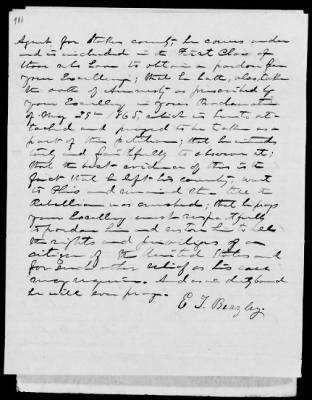 Agent for Stokes county, he comes under
and is included in the First Class of
those who have to obtain a pardon from
your Excellency; that he hath, also, taken
the oath of Amnesty as prescribed by
your Excellency in your Proclamation
of May 29th 1865, which is hereto at-
tached and prayed to be taken as a
part of this petition; that he intends
truly and faithfully to observe it;
that the best evidence of this is the
fact that he left his county, went
to Ohio and remained there till the
Rebellion was crushed; that he prays
your Excellency most respectfully
to pardon him and restore him to all
the rights and privileges of a
citizen of the United States and
for such other relief as his case
may require. And as in duty bound
he will ever pray.
E. T. Beazley.